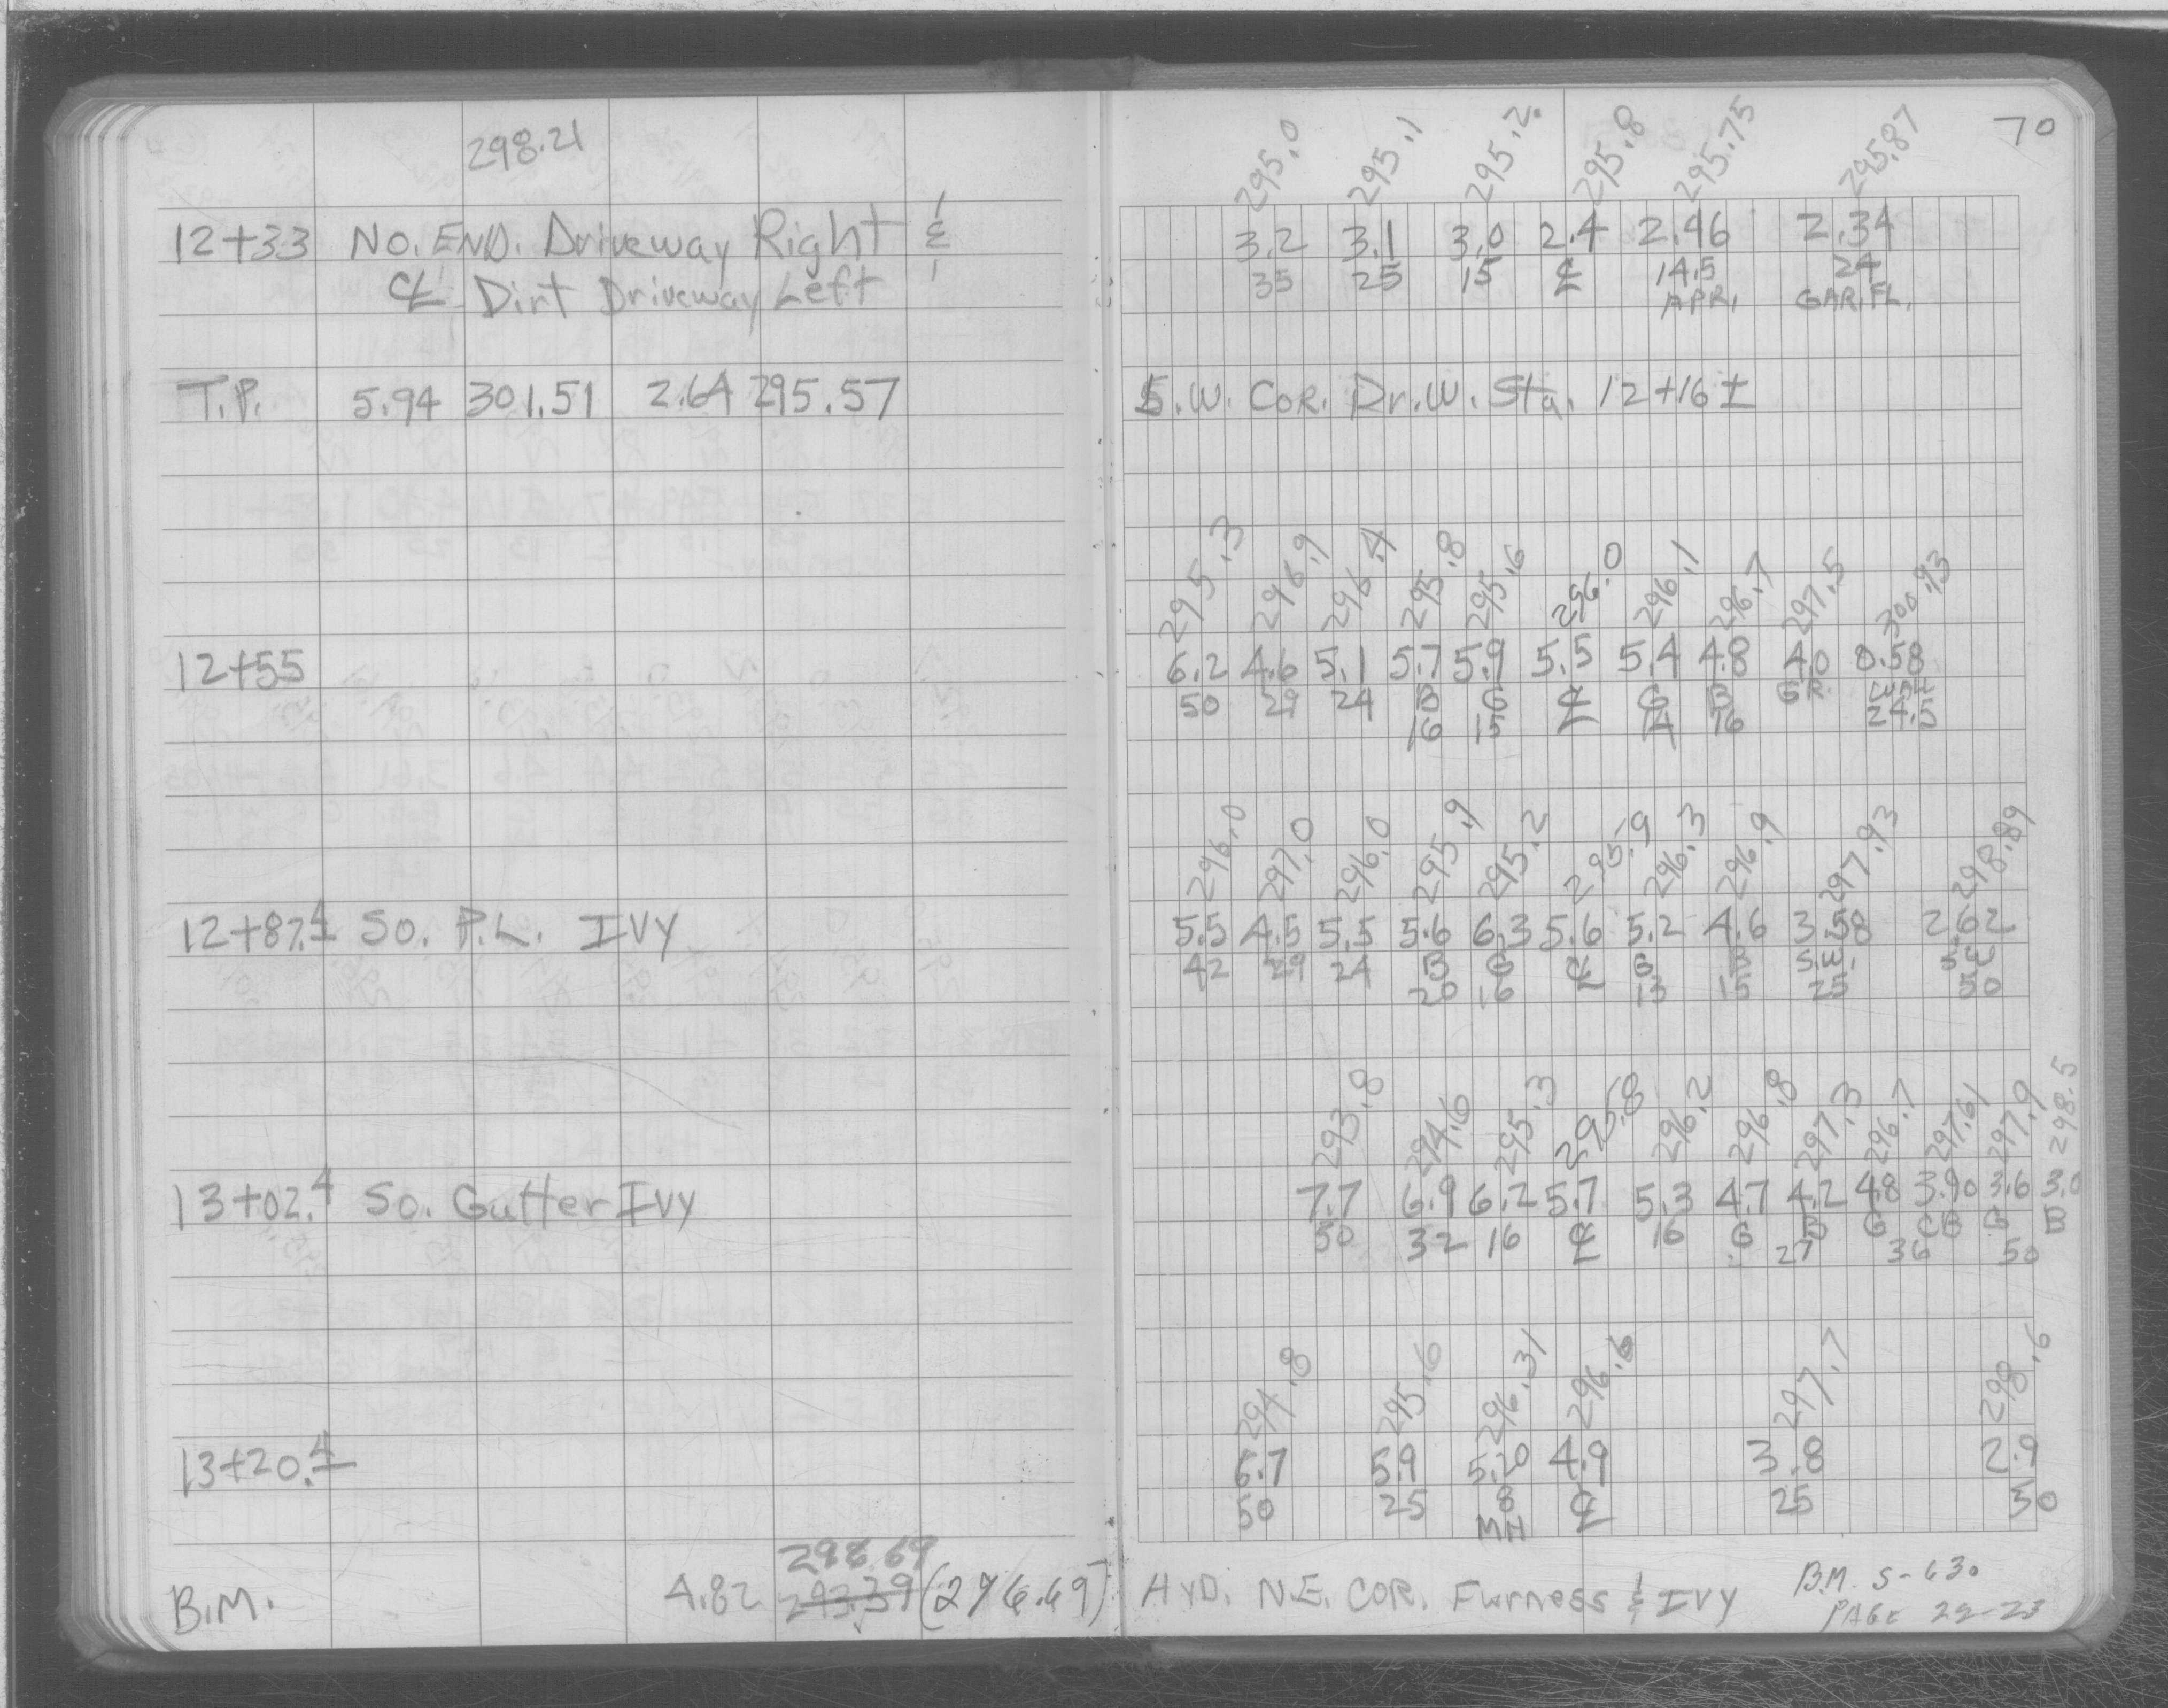 298.21
12+33 No. END. Driveway Right &
℄ Dirt Driveway Left
T.P. 5.94 301.51 2.64 295.57
12+55
12+87.4 So. P.L. IVY
13+02.4 So. Gutter Ivy
13+20.4
298.69
B.M. 4.82 293.39 (296.69)
70
295.0 295.1 295.2 295.8 295.75 295.87
3.2 3.1 3.0 2.4 2.46 2.34
35 25 15 ℄ 14.5 24
APR. GAR.FL.
S.W. COR. Dr.W. Sta. 12+16 ±
295.3 296.9 296.4 295.8 295.6 296.0 296.1 296.7 297.5 300.93
6.2 4.6 5.1 5.7 5.9 5.5 5.4 4.8 4.0 0.58
50 29 24 B G ℄ G B GR.
16 15 14 16 24.5
296.0 297.0 296.0 295.9 295.2 295.9 296.3 296.9 297.93 298.89
5.5 4.5 5.5 5.6 6.3 5.6 5.2 4.6 3.58 2.62
42 29 24 B G ℄ G B S.W. S.W.
20 16 13 15 25 50
293.8 294.6 295.3 295.8 296.2 296.8 297.3 296.7 297.61 297.9 298.5
7.7 6.9 6.2 5.7 5.3 4.7 4.2 4.8 3.90 3.6 3.0
50 32 16 ℄ 16 G B G CB G B
27 36 50
294.8 295.6 296.31 296.6 297.7 298.6
6.7 5.9 5.20 4.9 3.8 2.9
50 25 8 ℄ 25 50
MH
HYD. N.E. COR. Furness & IVY B.M. S-630
PAGE 22-23